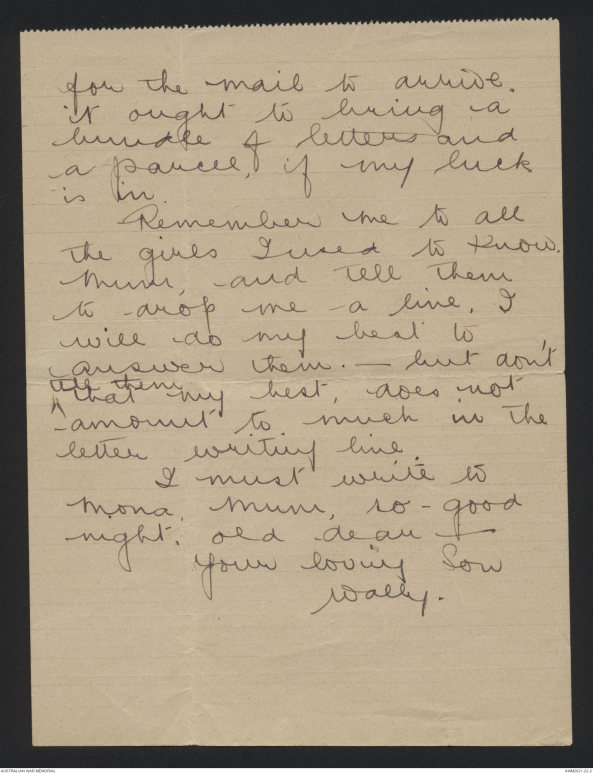 for the mail to arrive.
it ought to bring a
bundle of letters and
a parcel, if my luck
is in.
Remember me to all
the girls I used to know.
Mum, and tell them
to drop me a line, I
will do my best to
answer them. — but don't
tell them
that my best, does not
amount to much in the
letter writing line.
I must write to
Mona, Mum, so-good
night, old dear —
Your loving Son
Wally.
AUSTRALIAN WAR MEMORIAL